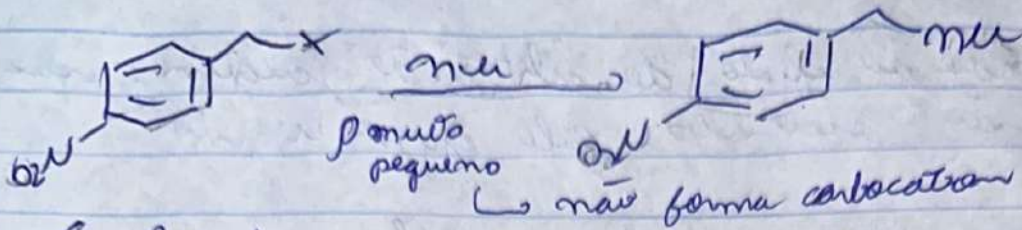 X
nu
nu
ρ muito
pequeno
O2N
O2N
↳ não forma carbocation